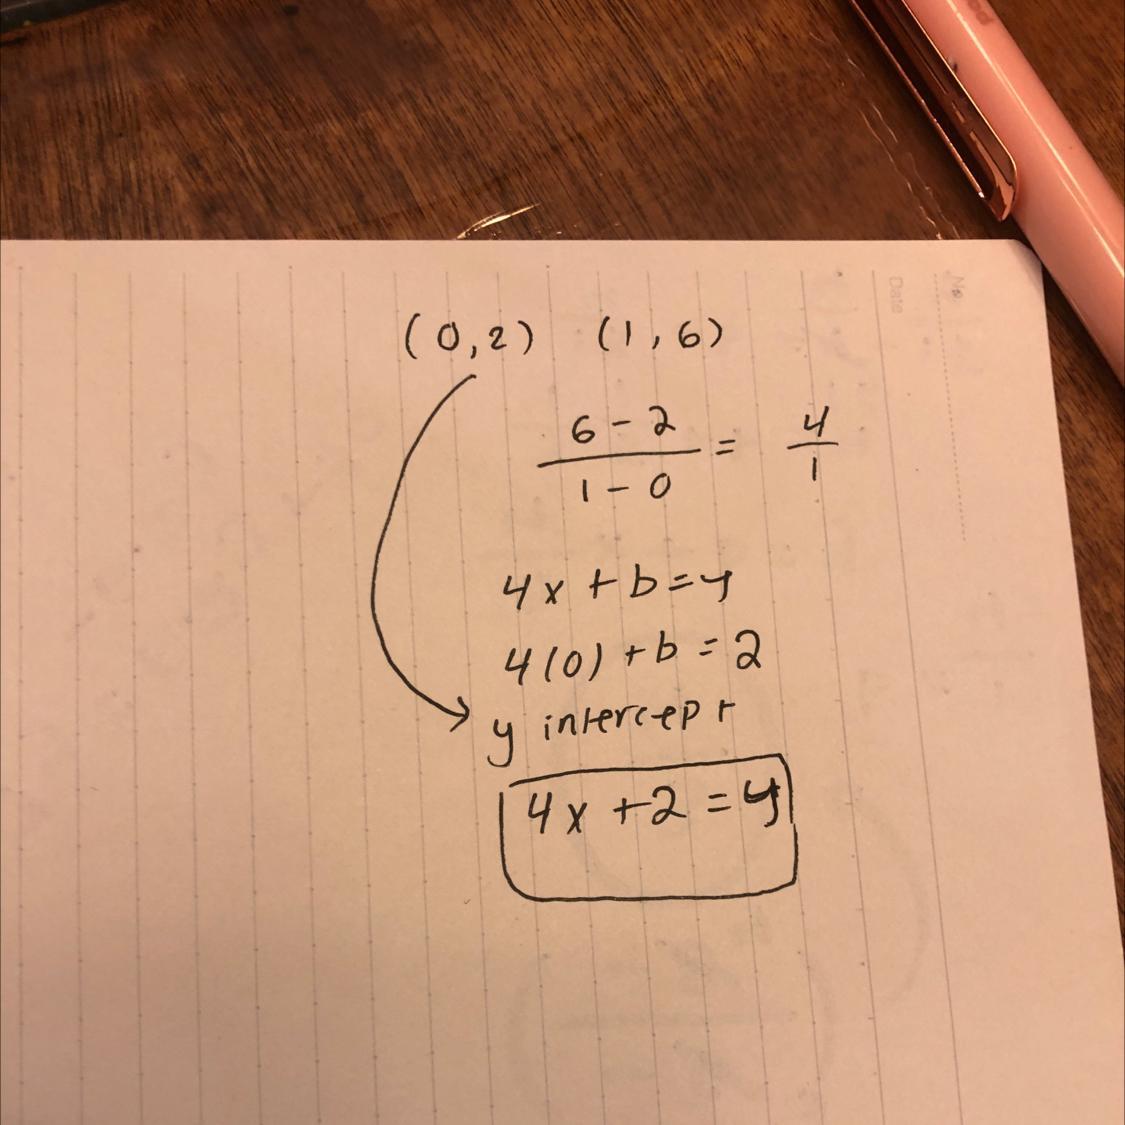 (0,2) (1,6)
6 - 2
1 - 0
= 4
1
4x + b = y
4(0) + b = 2
y intercept
4x + 2 = y
No.
Date